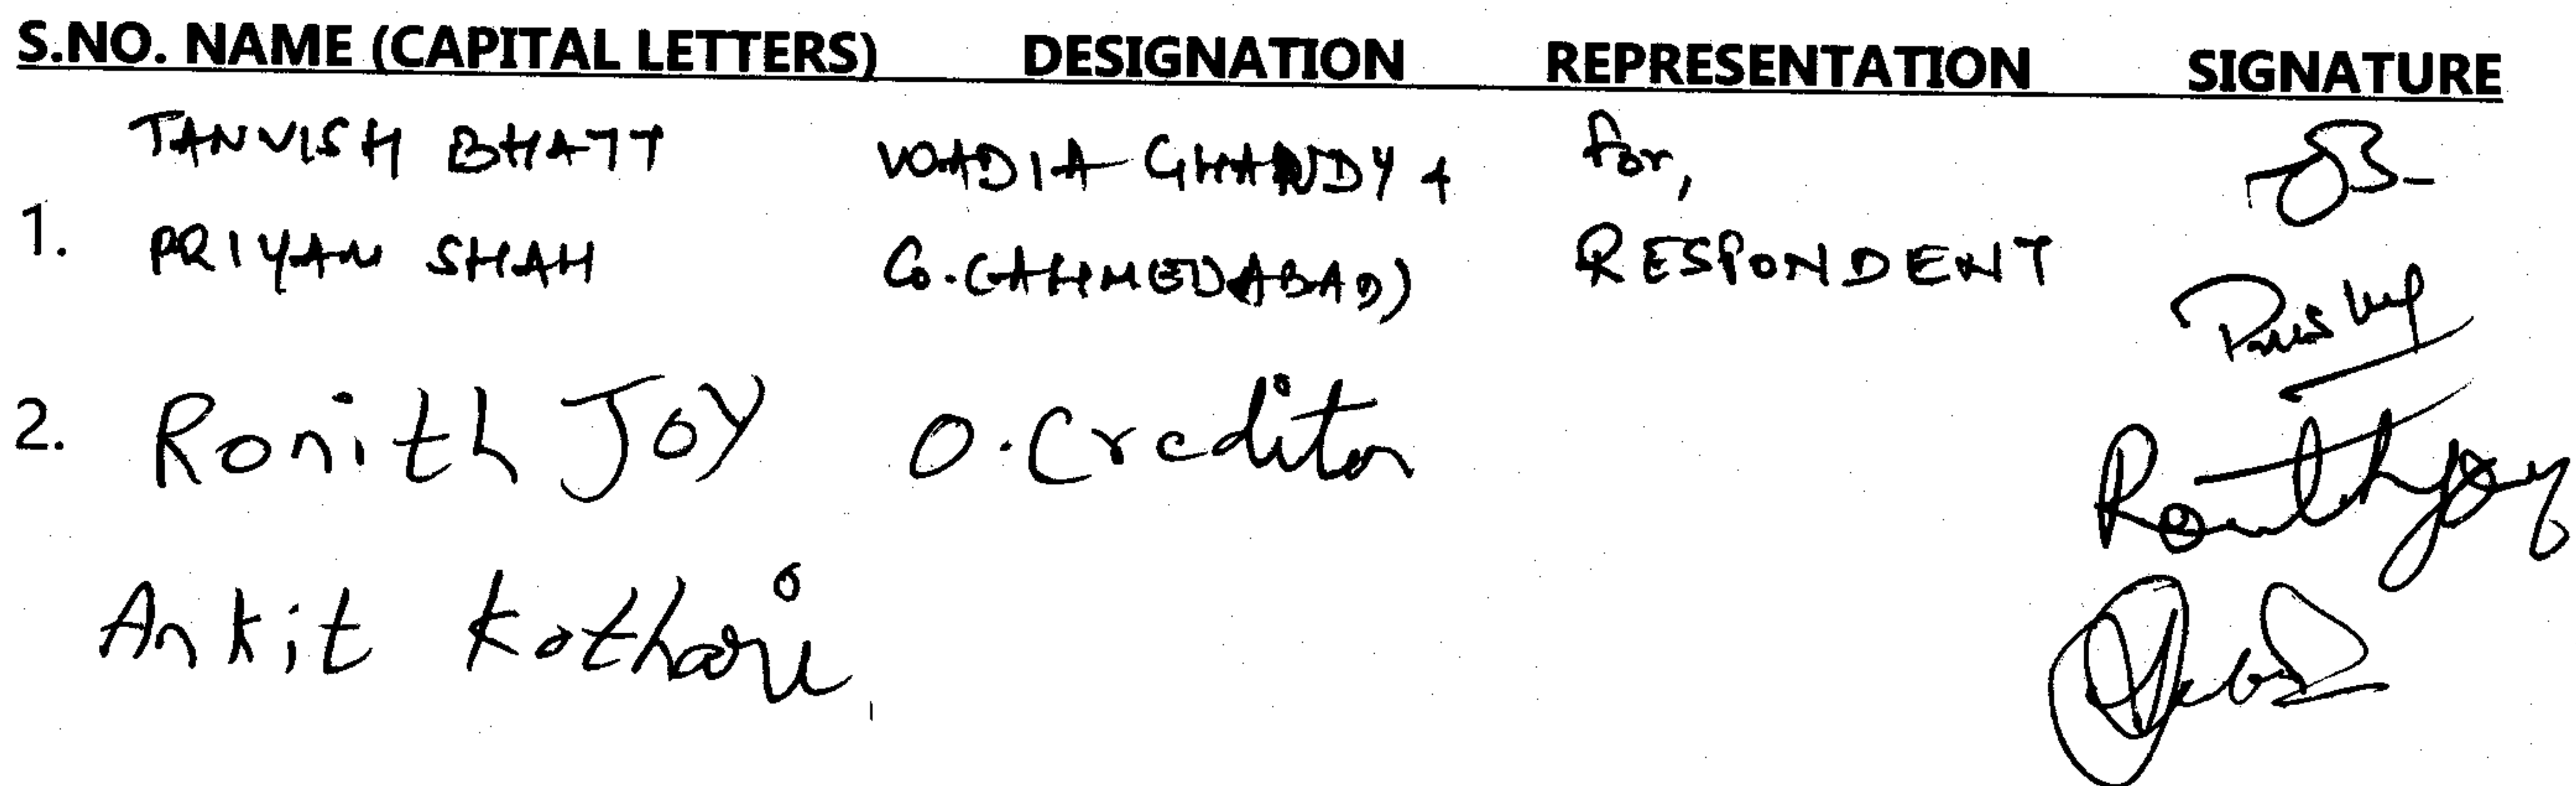 S.NO. NAME (CAPITAL LETTERS) DESIGNATION REPRESENTATION SIGNATURE
TANVISH BHATT WADIA GHANDY & for,
1. PRIYAN SHAH Co. (AHMEDABAD) RESPONDENT
2. Ronith JOY O. Creditor Ronith Joy
Ankit Kothari